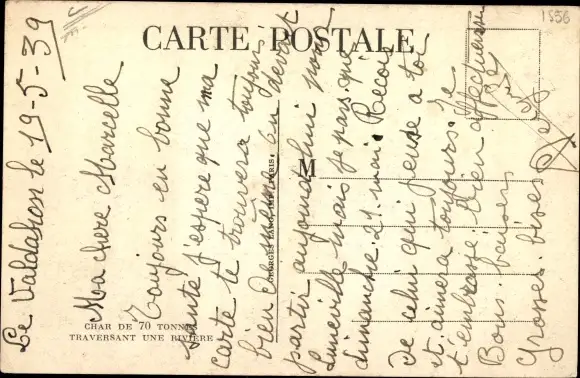 1556
CARTE POSTALE
Le Valdahon le 19-5-39
Ma chere Marcelle
Toujours en bonne
santé j'espere que ma
carte te trouvera toujours
bien de meme. on devait
partir aujourd'hui pour
Luneville mais je pars que
dimanche 21 mai. Recois
de celui qui pense a toi
et aimera toujours. Je
t'embrasse bien affectueusement
Bons baisers
Grosses bises
M
CHAR DE 70 TONNES
TRAVERSANT UNE RIVIÈRE
GEORGES LANG, IMP. PARIS.